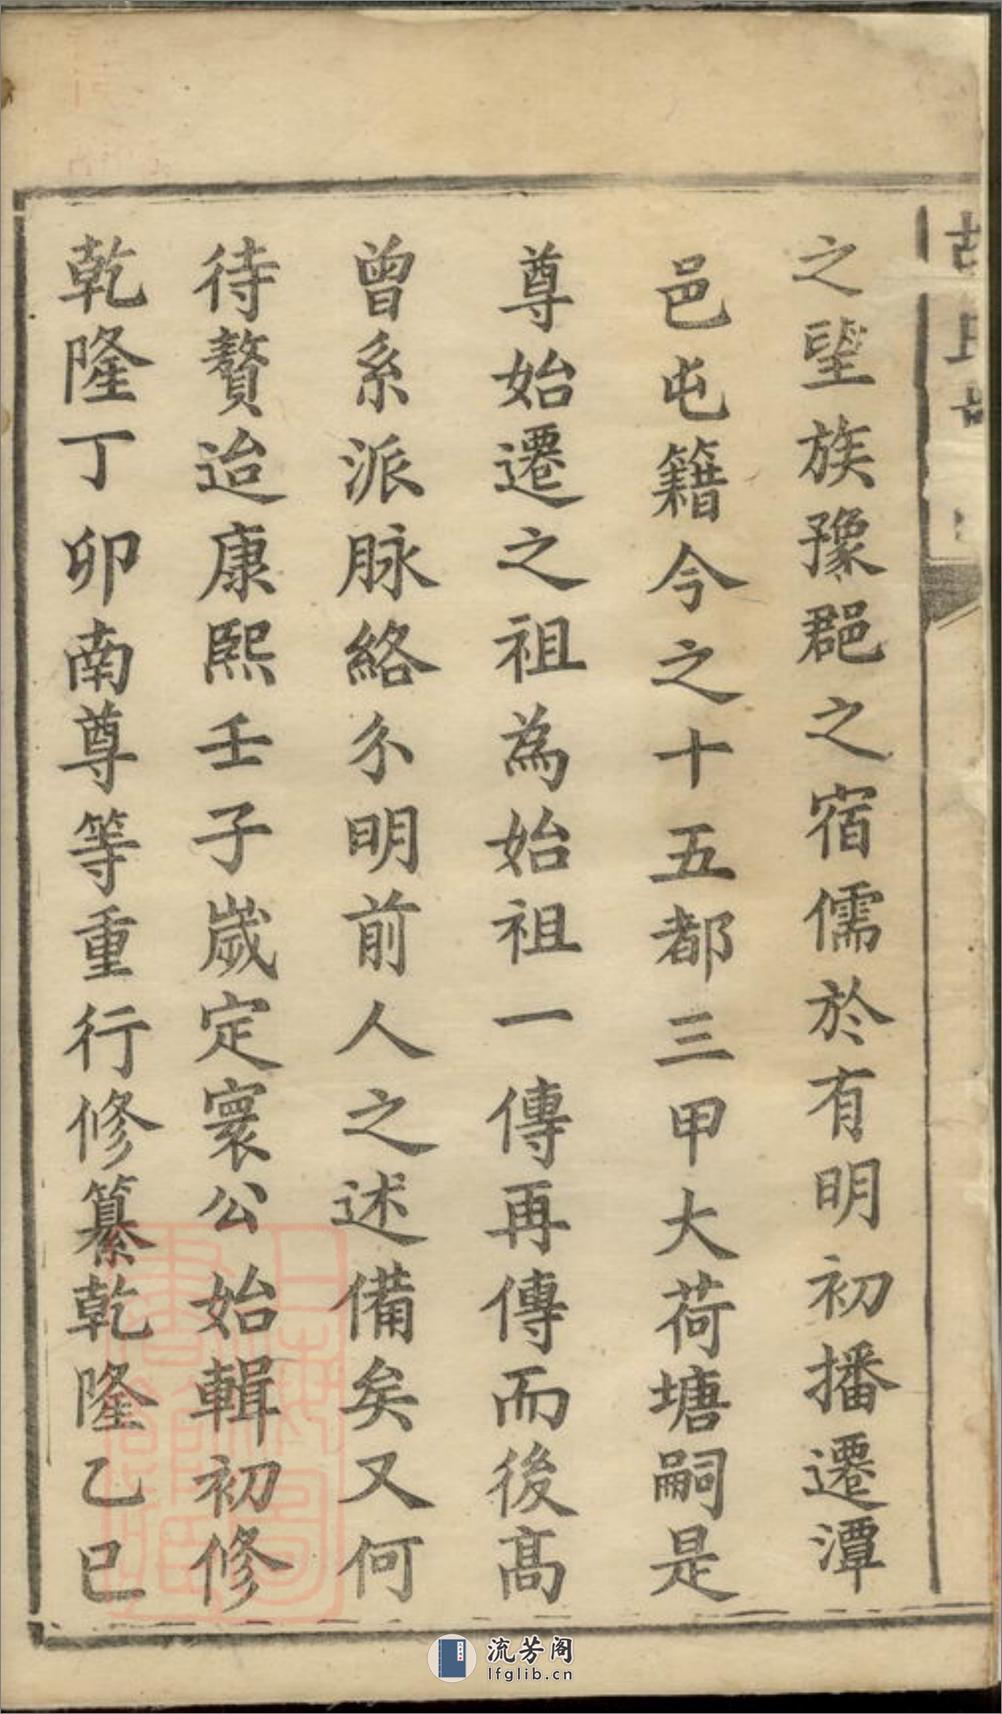 胡氏
之望族豫郡之宿儒於有明初播遷潭
邑屯籍今之十五都三甲大荷塘嗣是
尊始遷之祖為始祖一傳再傳而後高
曾系派脉絡分明前人之述備矣又何
待贅迨康熙壬子歲定寰公始輯初修
乾隆丁卯南尊等重行修纂乾隆乙巳
上海圖書館藏
流芳阁
lfglib.cn